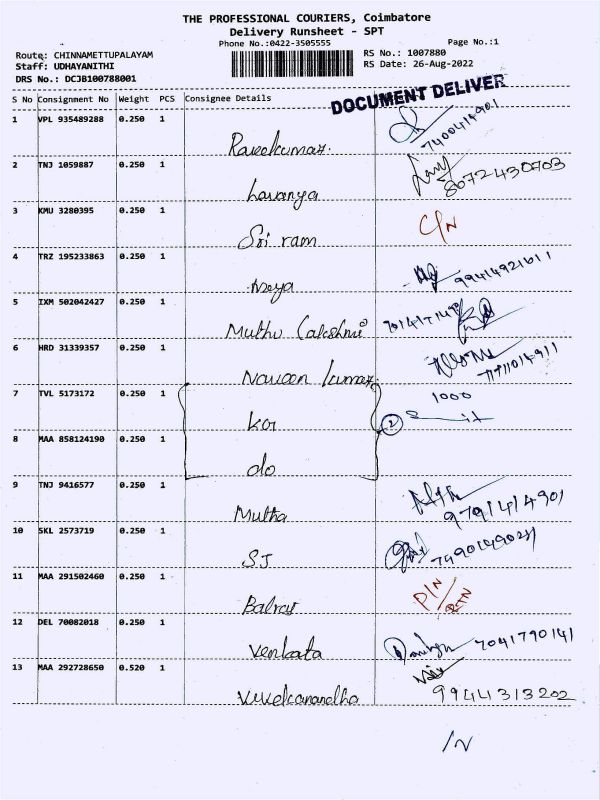 THE PROFESSIONAL COURIERS, Coimbatore
Delivery Runsheet - SPT
Phone No.:0422-3505555
Page No.:1
Route: CHINNAMETTUPALAYAM
Staff: UDHAYANITHI
DRS No.: DCJB100788001
RS No.: 1007880
RS Date: 26-Aug-2022
DOCUMENT DELIVER
S No Consignment No Weight PCS Consignee Details
1 VPL 935489288 0.250 1
7400414901
2 TNJ 1059887 0.250 1
Lavanya 8072430703
3 KMU 3280395 0.250 1
Sri ram C/N
4 TRZ 195233863 0.250 1
99414921611
5 IXM 502042427 0.250 1
Muthu Lakshmi
6 HRD 31339357 0.250 1
Naveen kumar
7 TVL 5173172 0.250 1 1000
2
8 MAA 858124190 0.250 1
do
9 TNJ 9416577 0.250 1
Mutha 9791414901
10 SKL 2573719 0.250 1
SJ
11 MAA 291502460 0.250 1
P/N
RTN
12 DEL 70082018 0.250 1
Venkata 7041790141
13 MAA 292728650 0.520 1
Vivekanandha 9944313202
/N